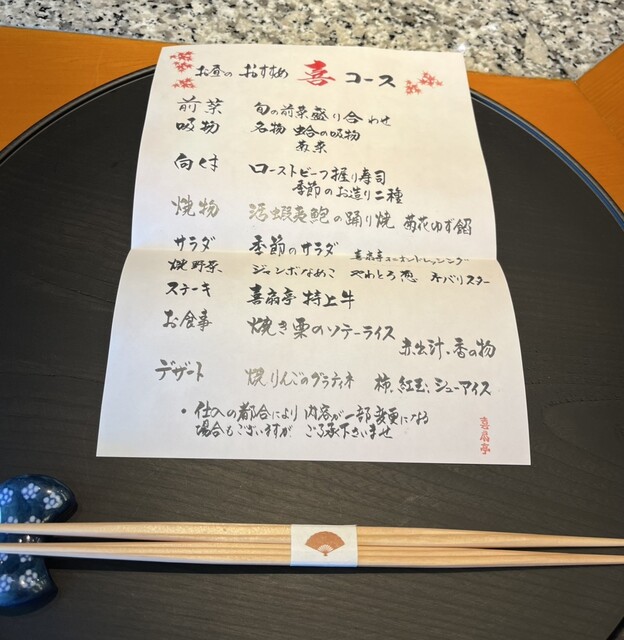 お昼の おすすめ 喜 コース
前菜 旬の前菜盛り合わせ
吸物 名物 蛤の吸物
向くす ローストビーフ握り寿司
季節のお造り二種
焼物 活蝦夷鮑の踊り焼 菊花ゆず餡
サラダ 季節のサラダ 喜扇亭オニオンドレッシング
焼野菜 ジャンボなめこ やわとろ葱
ステーキ 喜扇亭 特上牛
お食事 焼き栗のソテーライス
赤出汁、香の物
デザート 焼りんごのグラティネ 柿、紅玉、シューアイス
・仕入の都合により 内容が一部変更になる
場合もございますが ご了承下さいませ
喜扇亭